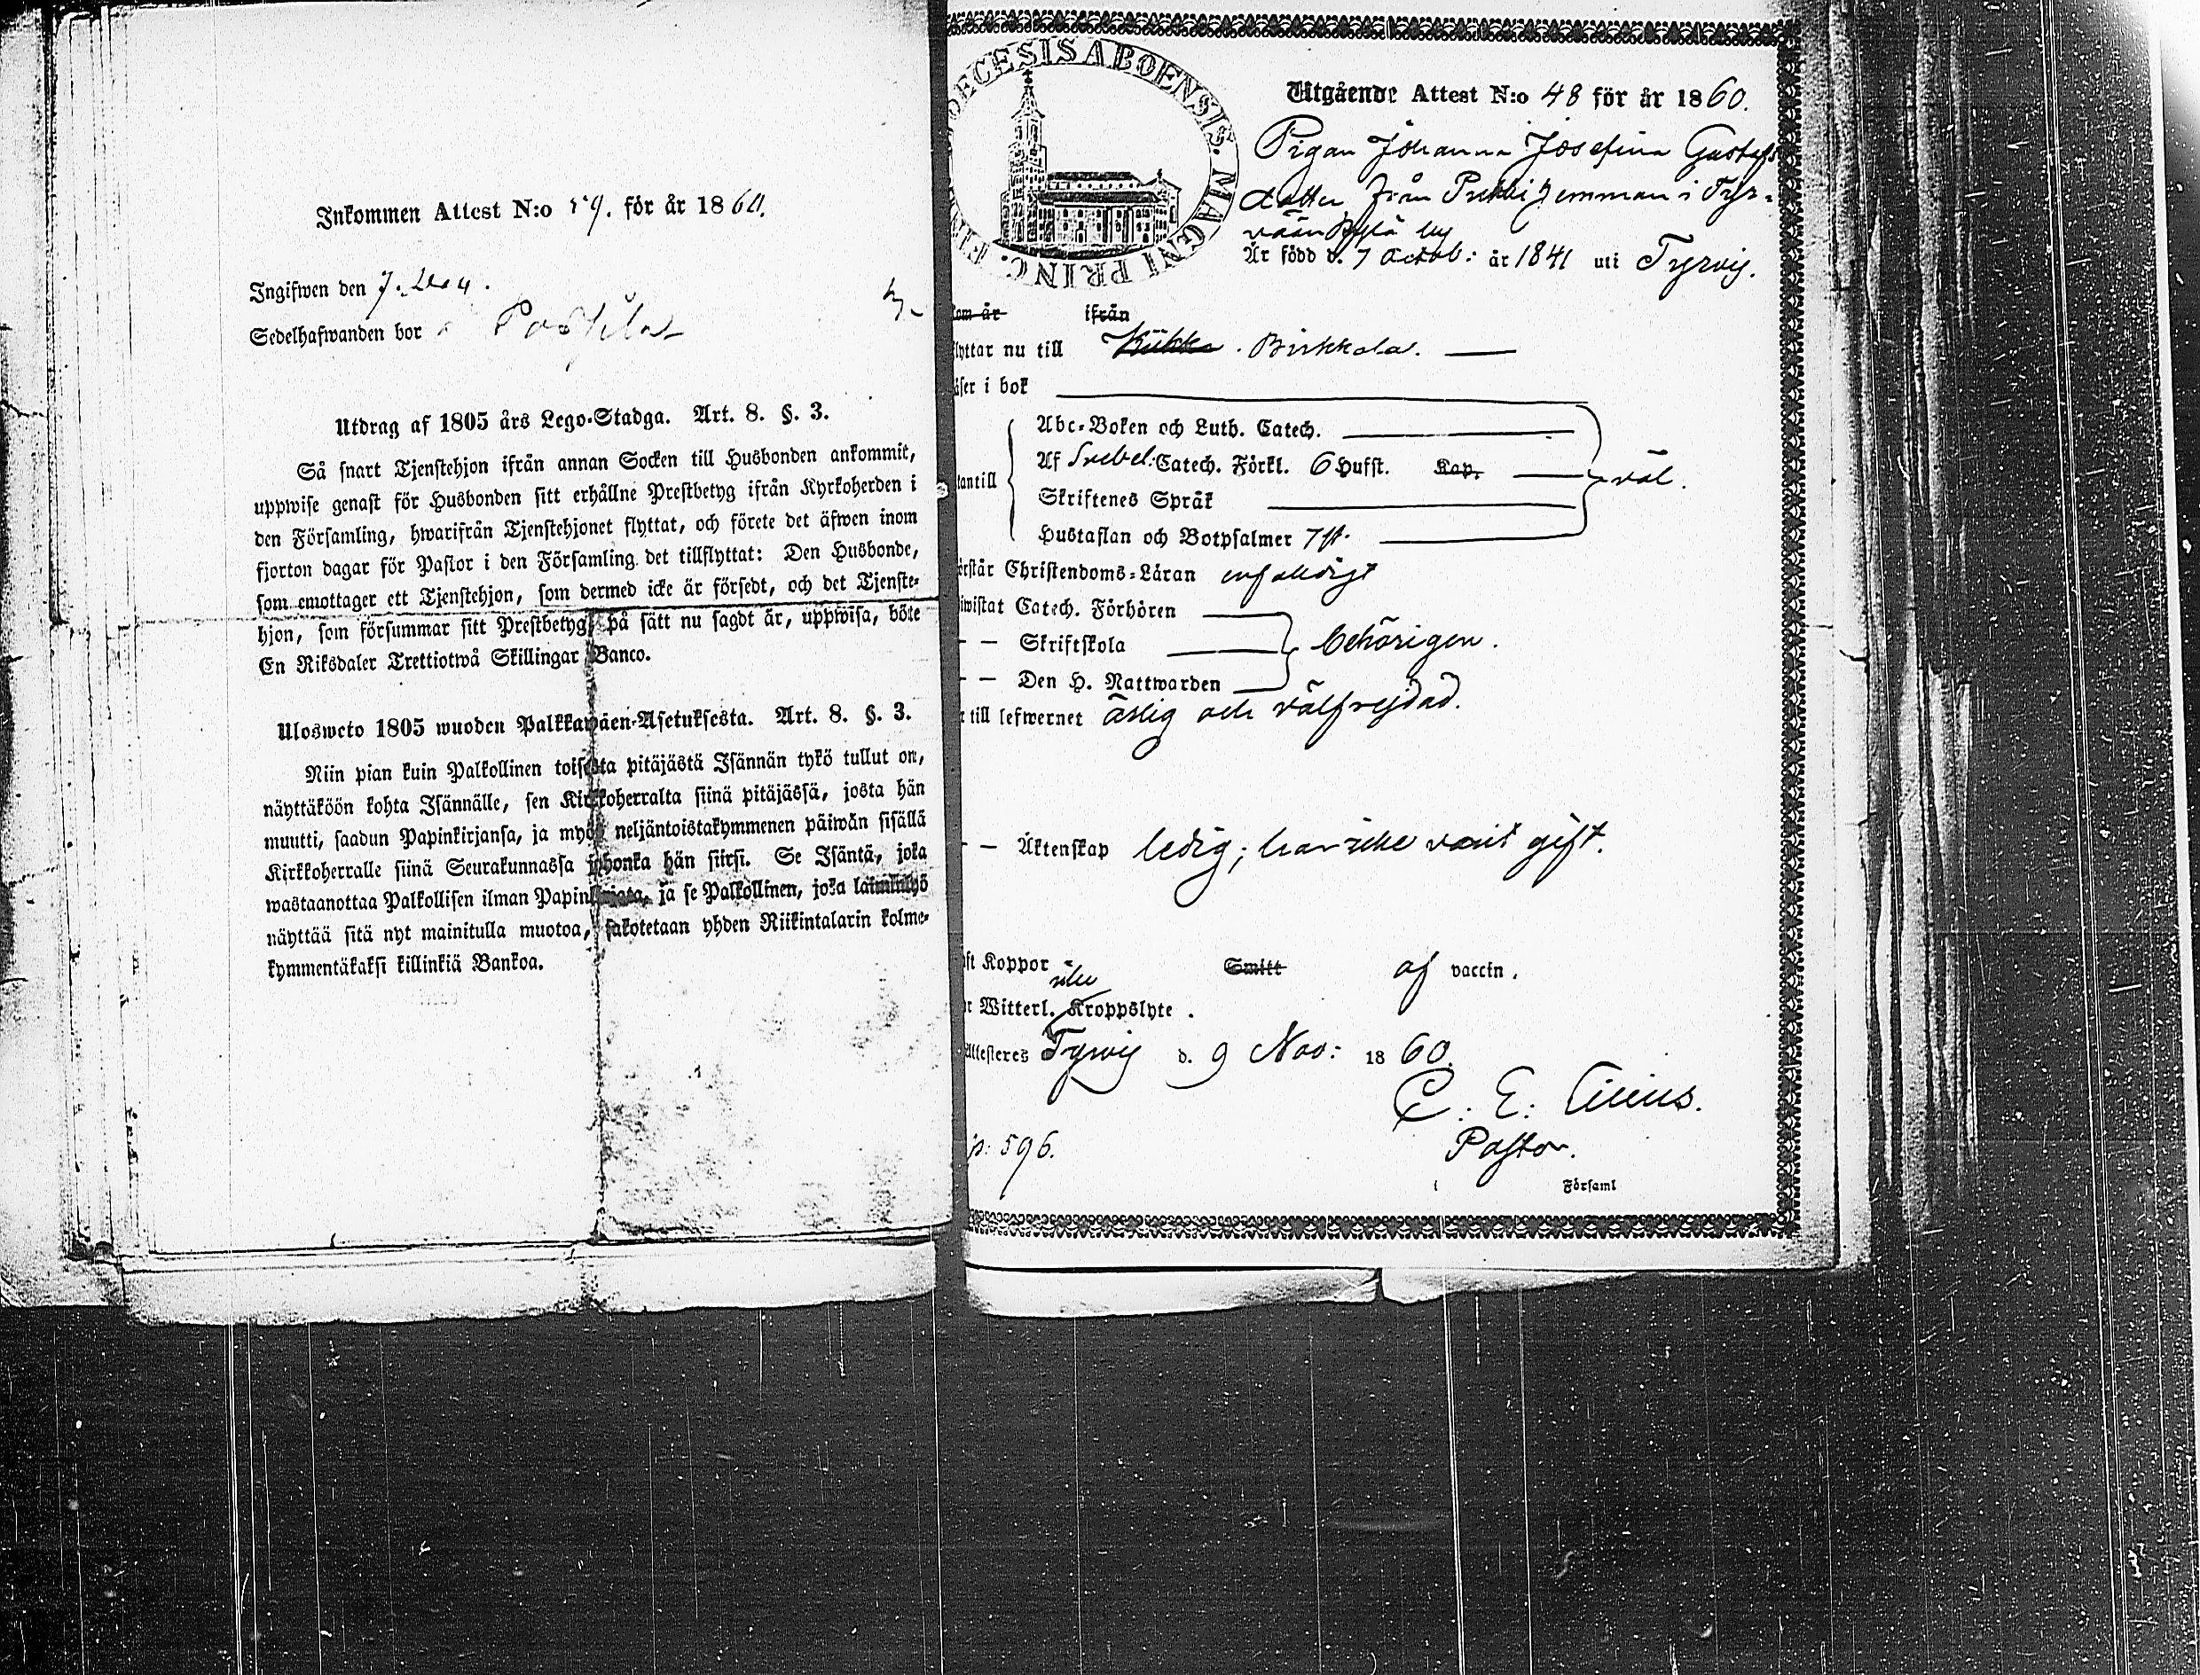 Inkommen Attest N:o 59. för år 1860.
Ingifwen den 7. Dec
Sedelhafwanden bor
Utdrag af 1805 års Lego-Stadga. Art. 8. §. 3.
Så snart Tjenstehjon ifrån annan Socken till Husbonden ankommit,
uppwise genast för Husbonden sitt erhållne Prestbetyg ifrån Kyrkoherden i
den Församling, hwarifrån Tjenstehjonet flyttat, och förete det äfwen inom
fjorton dagar för Pastor i den Församling det tillflyttat: Den Husbonde,
som emottager ett Tjenstehjon, som dermed icke är försedt, och det Tjenste-
hjon, som försummar sitt Prestbetyg, på sätt nu sagdt är, uppwisa, böte
En Riksdaler Trettiotwå Skillingar Banco.
Ulosweto 1805 wuoden Palkkawäen-Asetuksesta. Art. 8. §. 3.
Niin pian kuin Palkollinen toisesta pitäjästä Isännän tykö tullut on,
näyttäköön kohta Isännälle, sen Kirkkoherralta siinä pitäjässä, josta hän
muutti, saadun Papinkirjansa, ja myös neljäntoistakymmenen päiwän sisällä
Kirkkoherralle siinä Seurakunnassa johonka hän siirsi. Se Isäntä, joka
wastaanottaa Palkollisen ilman Papinkirjata, ja se Palkollinen, joka laiminlyö
näyttää sitä nyt mainitulla muotoa, sakotetaan yhden Riikintalarin kolme-
kymmentäkaksi killinkiä Bankoa.
DIECESIS ABOENSIS. MAGNI PRINC. FIN
Utgående Attest N:o 48 för år 1860.
Pigan Johanna Josefina Gustafs
dotter från hemman i Tyr-
vään by
Är född d. 7 Octob: år 1841 uti Tyrvis.
om är ifrån
lyttar nu till Birkkala.
äser i bok
Abc-Boken och Luth. Catech.
Af Svebel: Catech. Förkl. 6 Hufst. Kap.
tantill väl.
Skriftenes Språk
Hustaflan och Botpsalmer 7 st.
örstår Christendoms-Läran enfaldigt
iwistat Catech. Förhören
— — Skriftskola behörigen.
— — Den H. Nattwarden
r till lefwernet ärlig och välfrejdad.
— — Äktenskap ledig; har icke varit gift.
ft Koppor Smitt af vaccin.
icke
r Witterl. Kroppslyte.
Attesteres Tyrvis d. 9 Nov: 1860.
C. E.
Pastor.
p: 596.
i Församl